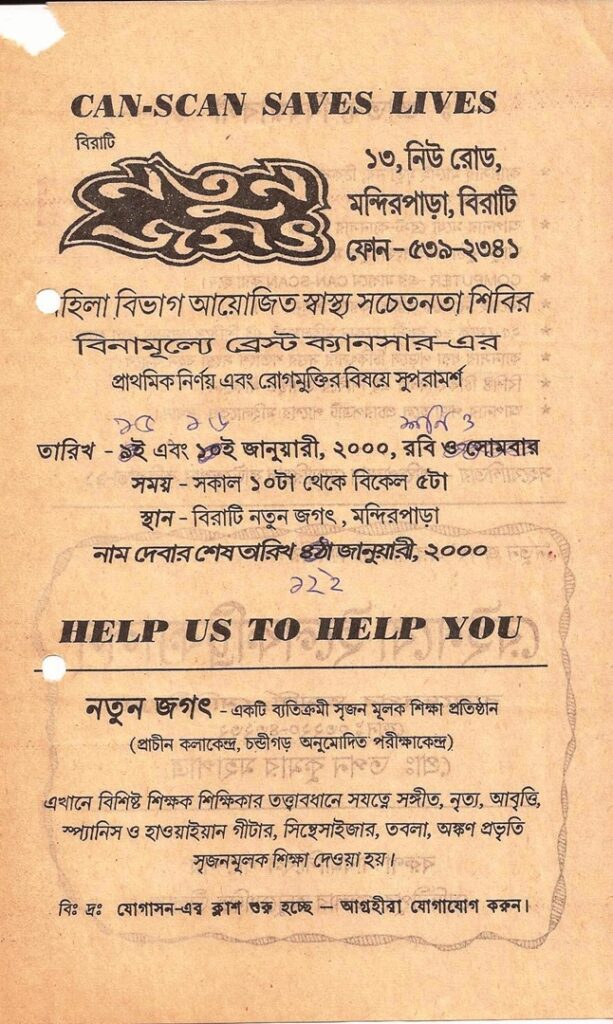 CAN-SCAN SAVES LIVES
বিরাটি
নতুন
জগৎ
১৩, নিউ রোড,
মন্দিরপাড়া, বিরাটি
ফোন - ৫৩৯-২৩৪১
মহিলা বিভাগ আয়োজিত স্বাস্থ্য সচেতনতা শিবির
বিনামূল্যে ব্রেস্ট ক্যানসার-এর
প্রাথমিক নির্ণয় এবং রোগমুক্তির বিষয়ে সুপরামর্শ
১৫ ১৬ শনি ও
তারিখ - ৯ই এবং ১০ই জানুয়ারী, ২০০০, রবি ও সোমবার
সময় - সকাল ১০টা থেকে বিকেল ৫টা
স্থান - বিরাটি নতুন জগৎ, মন্দিরপাড়া
নাম দেবার শেষ তারিখ ৪ঠা জানুয়ারী, ২০০০
HELP US TO HELP YOU
নতুন জগৎ - একটি ব্যতিক্রমী সৃজন মূলক শিক্ষা প্রতিষ্ঠান
(প্রাচীন কলাকেন্দ্র, চন্ডীগড় অনুমোদিত পরীক্ষাকেন্দ্র)
এখানে বিশিষ্ট শিক্ষক শিক্ষিকার তত্ত্বাবধানে সযত্নে সঙ্গীত, নৃত্য, আবৃত্তি,
স্প্যানিস ও হাওয়াইয়ান গীটার, সিন্থেসাইজার, তবলা, অঙ্কণ প্রভৃতি
সৃজনমূলক শিক্ষা দেওয়া হয়।
বিঃ দ্রঃ যোগাসন-এর ক্লাশ শুরু হচ্ছে – আগ্রহীরা যোগাযোগ করুন।